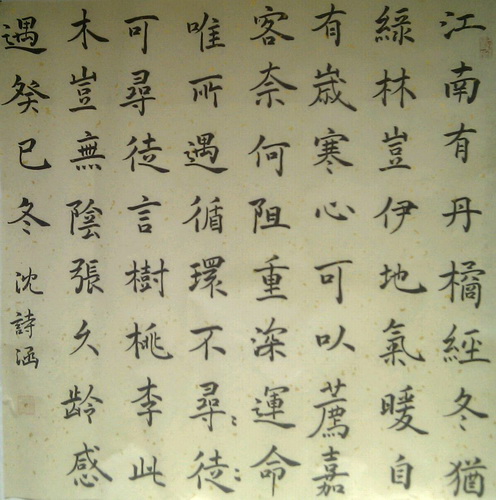 江南有丹橘經冬猶
綠林豈伊地氣暖自
有歲寒心可以薦嘉
客奈何阻重深運命
唯所遇循環不尋：徒：
可尋徒言樹桃李此
木豈無陰張久龄感
遇癸巳冬沈詩涵